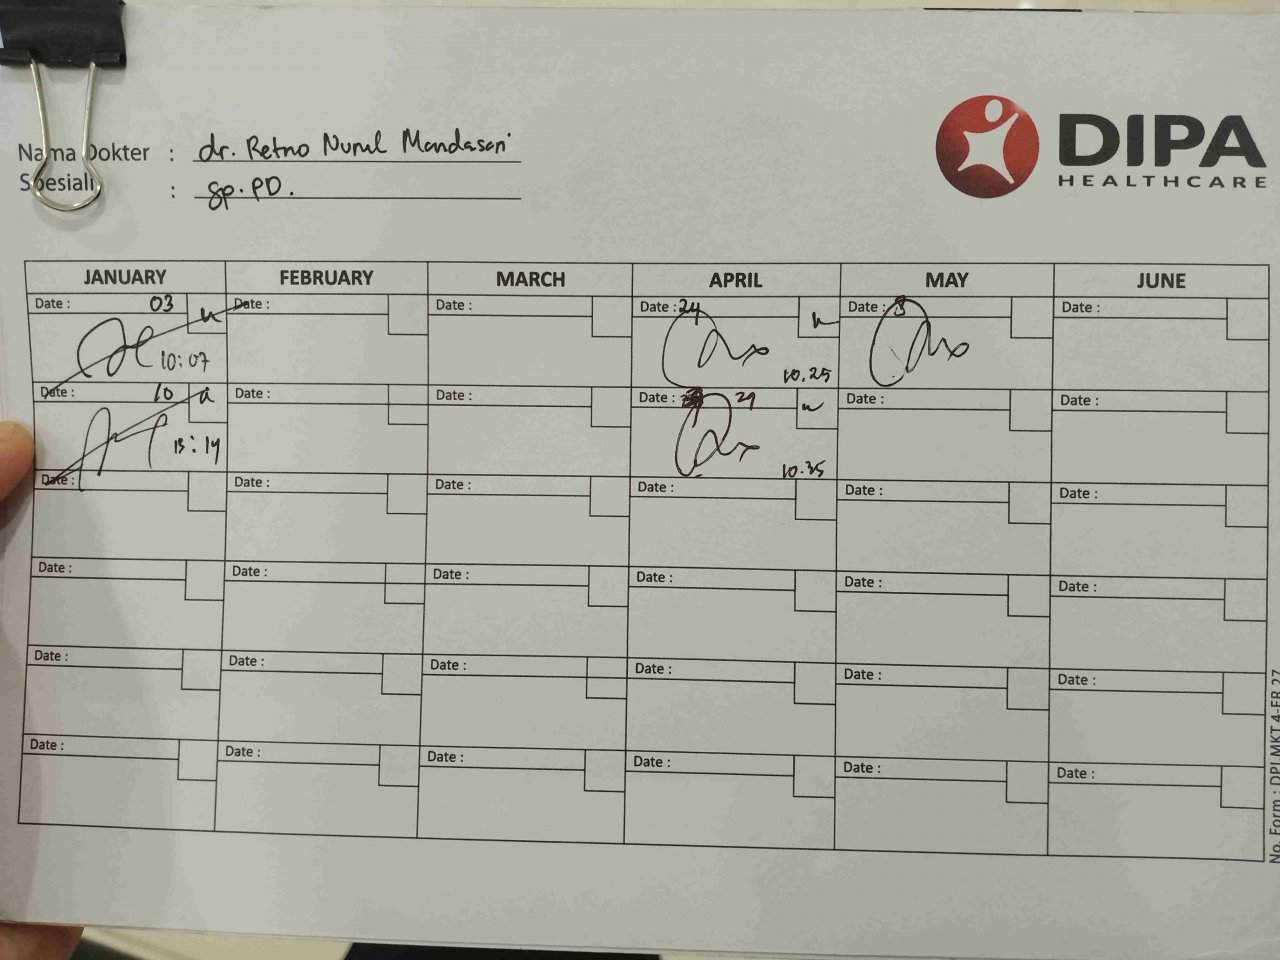 DIPA
HEALTHCARE
Nama Dokter : dr. Retno Nurul Mandasari
Spesiali : Sp.PD.
JANUARY FEBRUARY MARCH APRIL MAY JUNE
Date : 03 Date : Date : Date : 24 Date : 8 Date :
10:07 10.25
Date : 10 Date : Date : Date : 29 Date : Date :
13:14 10.35
Date : Date : Date : Date : Date : Date :
Date : Date : Date : Date : Date : Date :
Date : Date : Date : Date : Date : Date :
Date : Date : Date : Date : Date : Date :
No. Form : DPI.MKT.4-FR.27